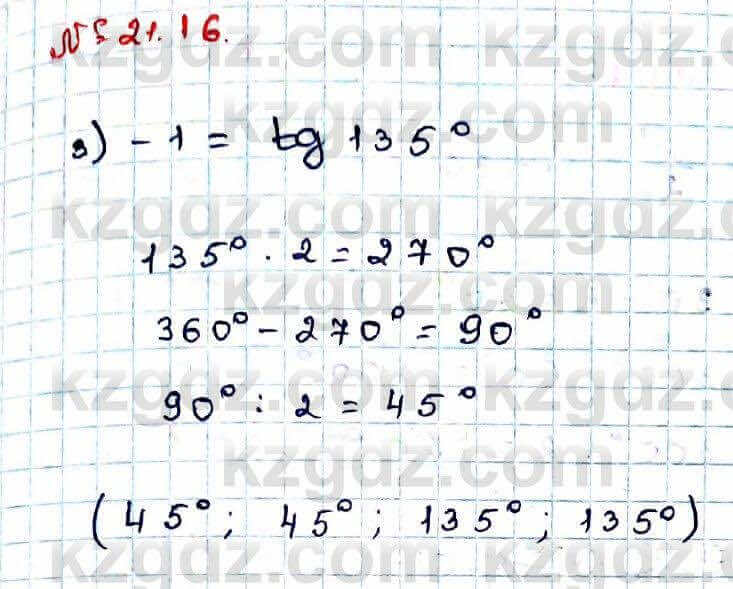 № 21.16.
kzgdz.com kzgdz.com
kzgdz.com
з) - 1 = tg 135°
kzgdz.com kzgdz.com
135° · 2 = 270°
kzgdz.com
360° - 270° = 90°
kzgdz.com kzgdz.com
90° : 2 = 45°
kzgdz.com
(45°; 45°; 135°; 135°)
kzgdz.com